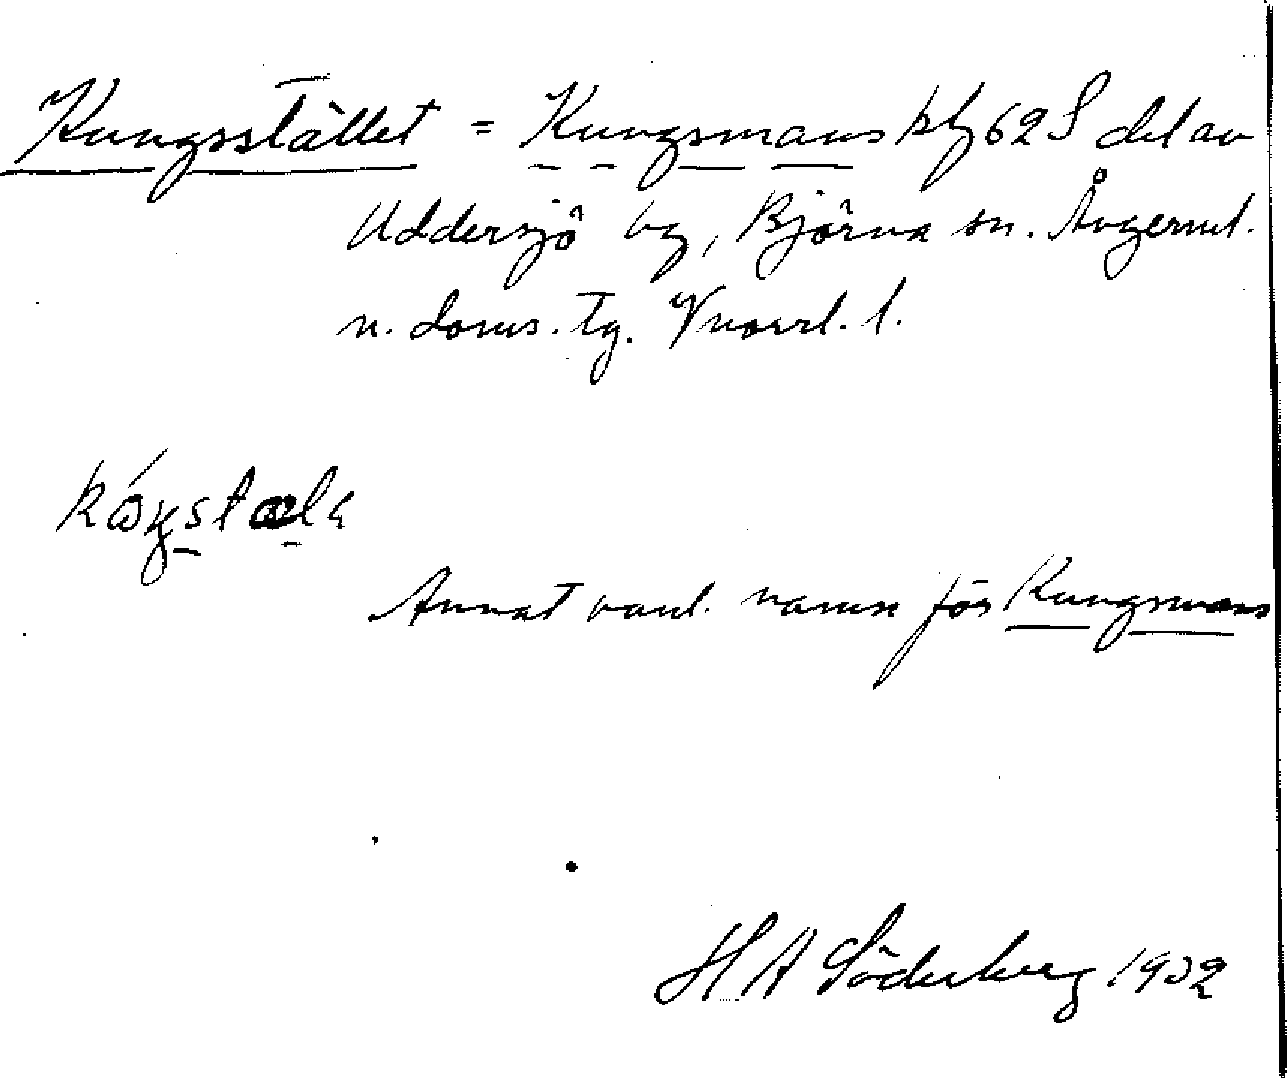 Kungsstället = Kungsmans på 62 S del av
Uddersjö by, Björna sn. Ångerml.
n. doms. tg. Vnorrl. l.
Annat vanl. namn för Kungsmans
H A Söderberg 1932